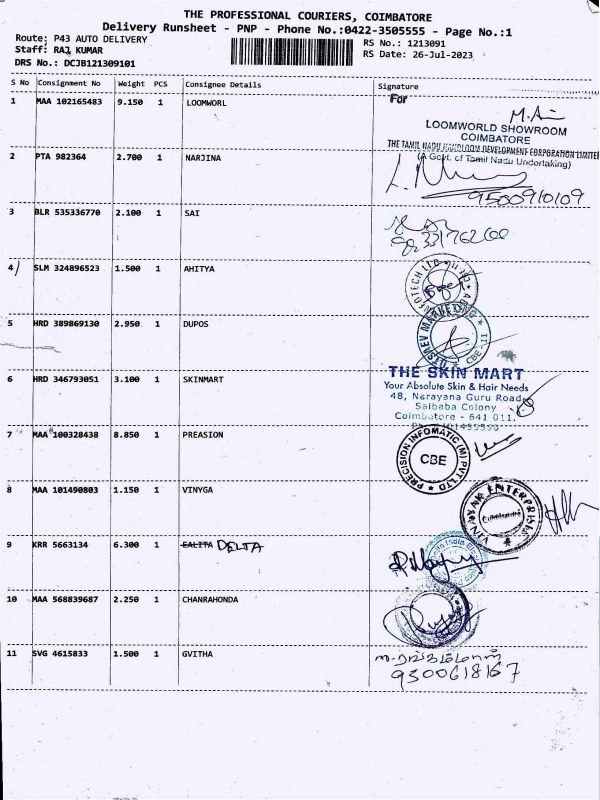 THE PROFESSIONAL COURIERS, COIMBATORE
Delivery Runsheet - PNP - Phone No.:0422-3505555 - Page No.:1
Route: P43 AUTO DELIVERY
RS No.: 1213091
Staff: RAJ KUMAR
RS Date: 26-Jul-2023
DRS No.: DCJB121309101
S No Consignment No Weight PCS Consignee Details Signature
1 MAA 102165483 9.150 1 LOOMWORL
For
LOOMWORLD SHOWROOM
COIMBATORE
THE TAMIL NADU HANDLOOM DEVELOPMENT CORPORATION LIMITED
(A Govt. of Tamil Nadu Undertaking)
2 PTA 982364 2.700 1 NARJINA
9500910109
3 BLR 535336770 2.100 1 SAI
4 SLM 324896523 1.500 1 AHITYA
5 HRD 389869130 2.950 1 DUPOS
CBE-11
6 HRD 346793051 3.100 1 SKINMART
THE SKIN MART
Your Absolute Skin & Hair Needs
48, Narayana Guru Road
Saibaba Colony
Coimbatore - 641 011.
7 MAA 100328438 8.850 1 PREASION
PRECISION INFOMATIC (M) PVT LTD
CBE
8 MAA 101490803 1.150 1 VINYGA
VINAYAK ENTERPRISES
Coimbatore
9 KRR 5663134 6.300 1 EALITA DELTA
10 MAA 568839687 2.250 1 CHANRAHONDA
11 SVG 4615833 1.500 1 GVITHA
9300618167